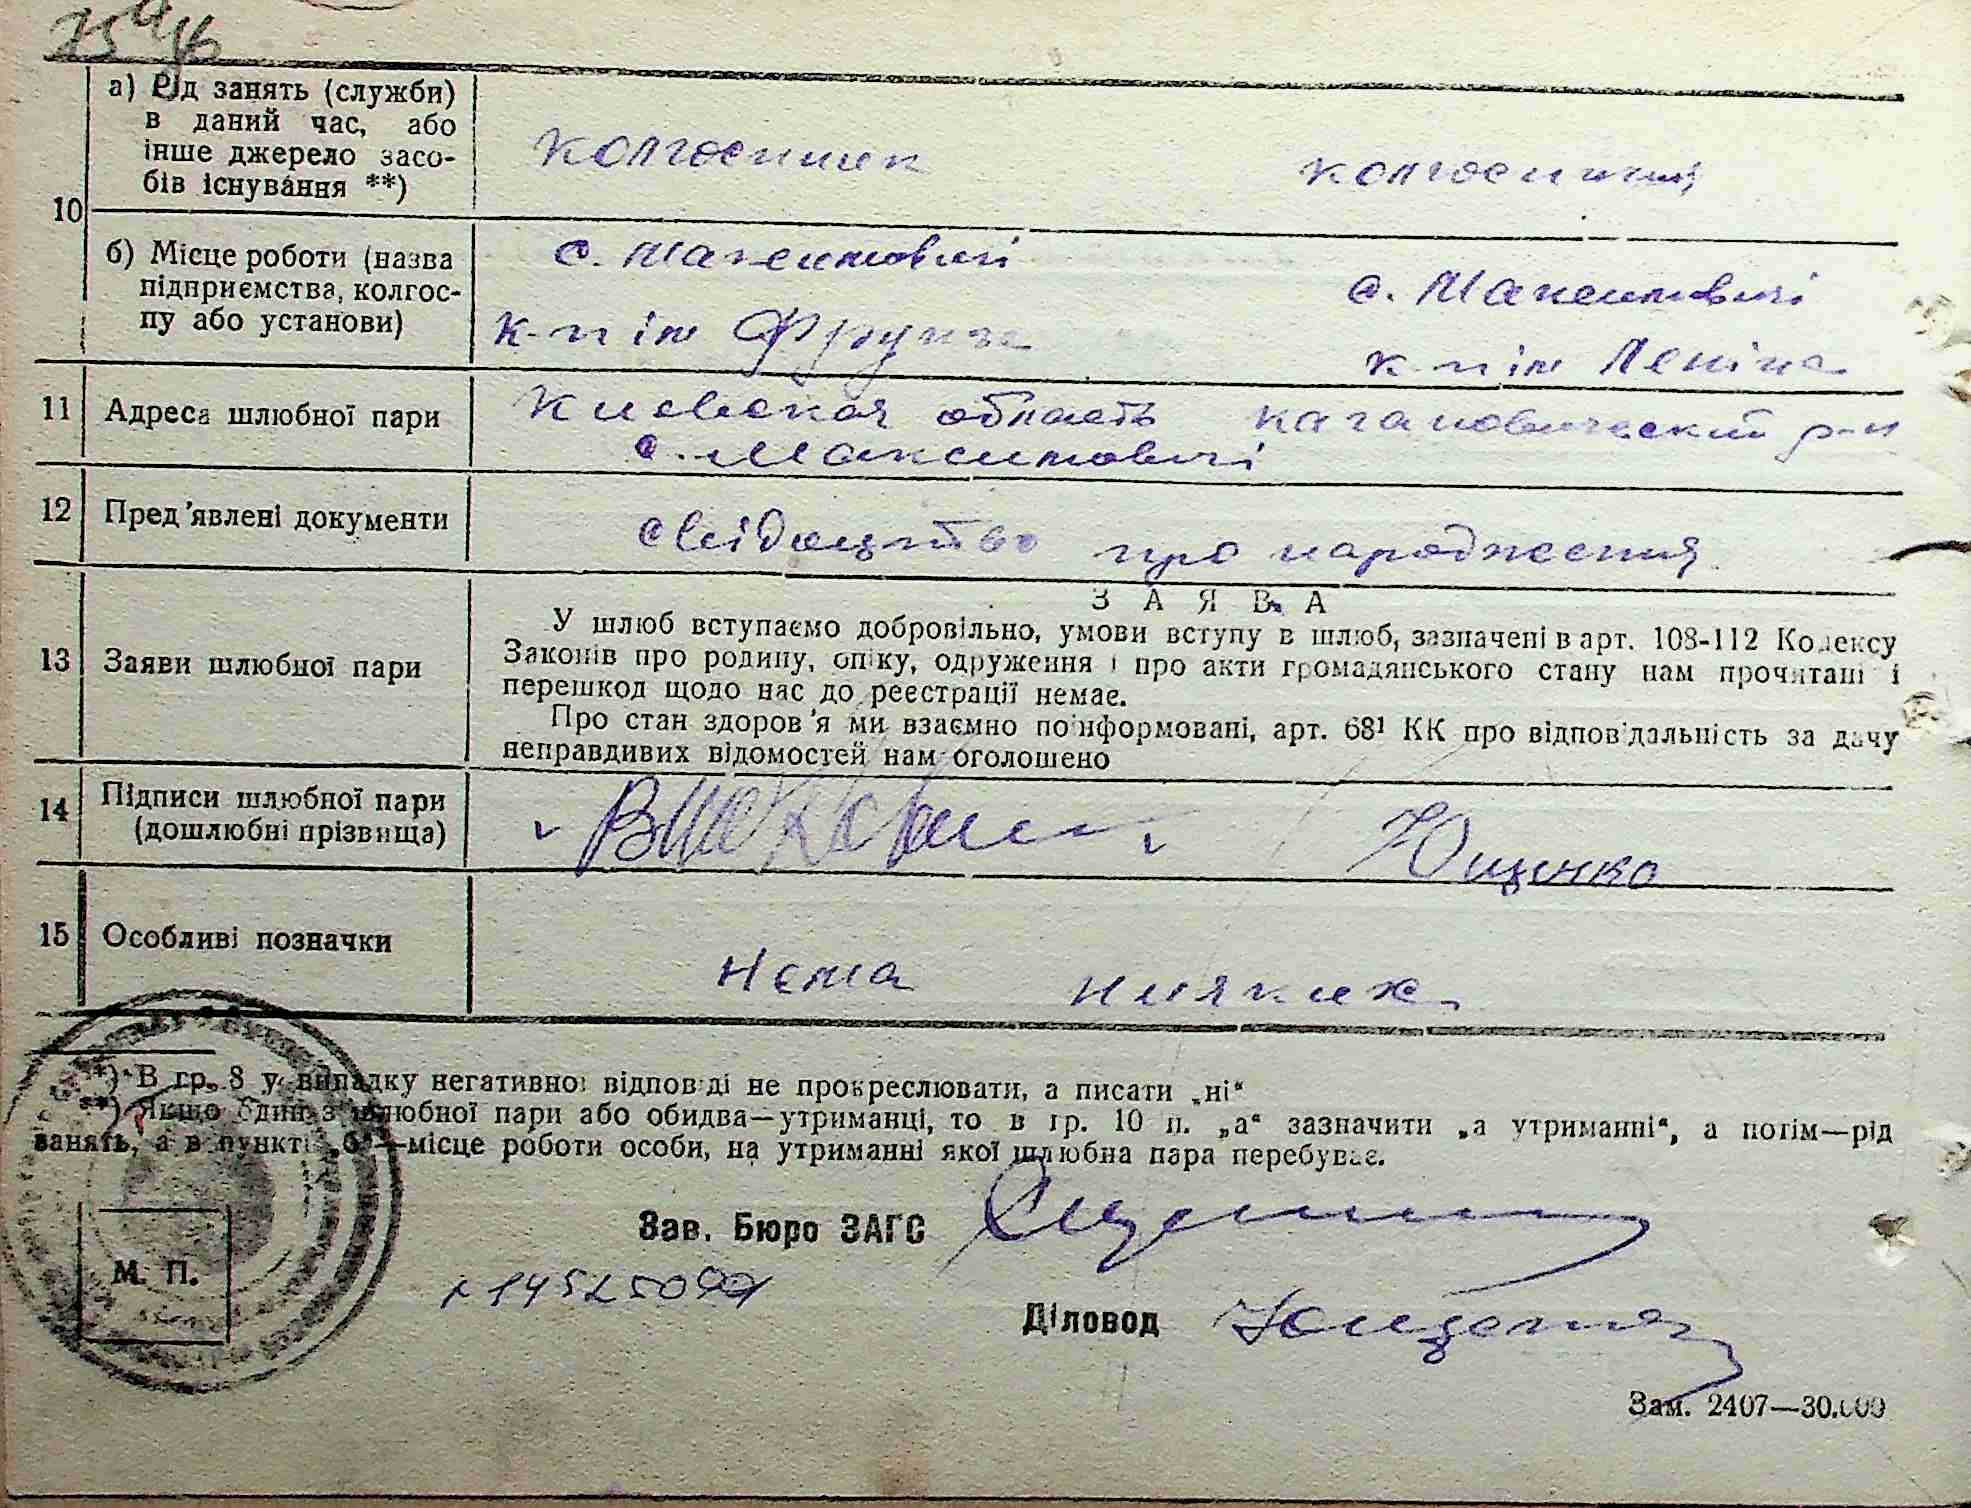 10
а) Рід занять (служби)
в даний час, або
інше джерело засо-
бів існування **)
колгоспник колгоспниця
б) Місце роботи (назва
підприємства, колгос-
пу або установи)
с. Максимовичі с. Максимовичі
к-п ім Фрунзе к-п ім Леніна
11 Адреса шлюбної пари
Киевская область Кагановический р-н
с. Максимовичі
12 Пред'явлені документи
свідоцтво про народження
ЗАЯВА
13 Заяви шлюбної пари
У шлюб вступаємо добровільно, умови вступу в шлюб, зазначені в арт. 108-112 Кодексу
Законів про родину, опіку, одруження і про акти громадянського стану нам прочитані і
перешкод щодо нас до реєстрації немає.
Про стан здоров'я ми взаємно поінформовані, арт. 68¹ КК про відповідальність за дачу
неправдивих відомостей нам оголошено
14 Підписи шлюбної пари
(дошлюбні прізвища)
Ющенко
15 Особливі позначки
Нема ніяких
*) В гр. 8 у випадку негативної відповіді не прокреслювати, а писати „ні“
**) Якщо один з шлюбної пари або обидва—утриманці, то в гр. 10 п. „а“ зазначити „а утриманні“, а потім—рід
занять, а в пункті „б“—місце роботи особи, на утриманні якої шлюбна пара перебуває.
Зав. Бюро ЗАГС
М. П.
Діловод
Зам. 2407—30.000